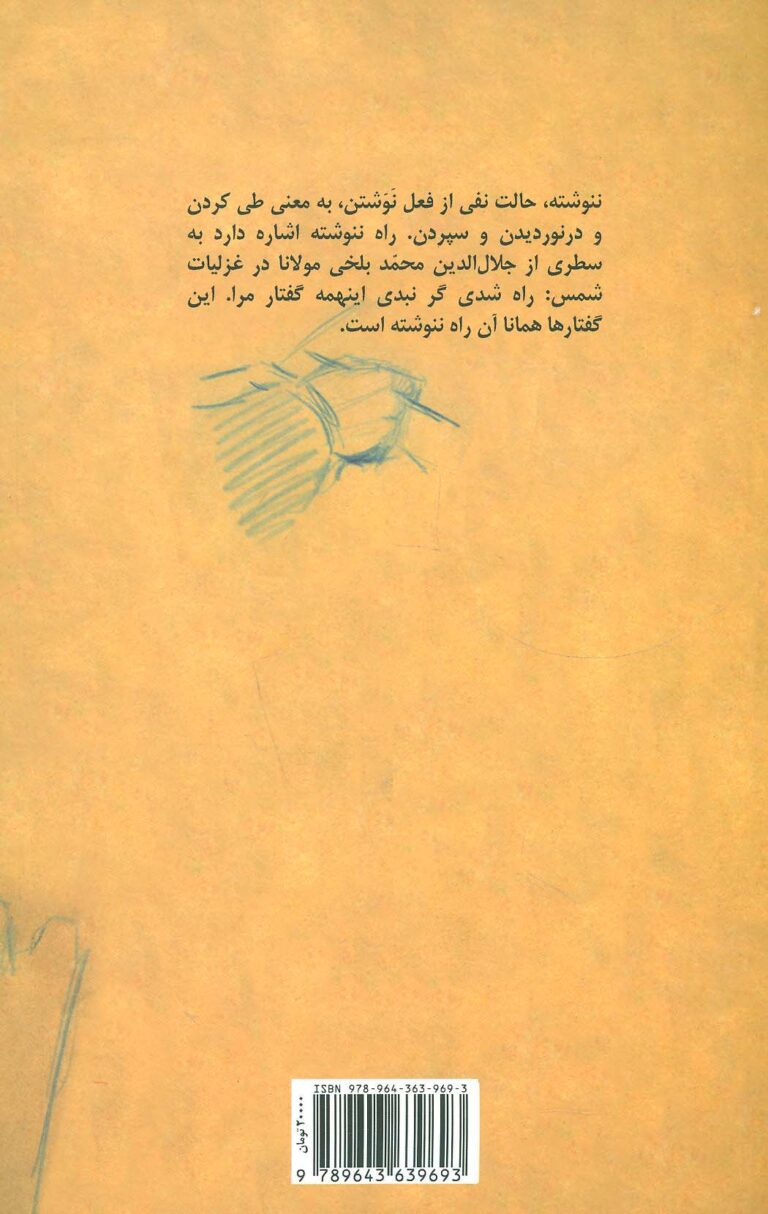 ننوشته، حالت نفی از فعل نَوَشتن، به معنی طی کردن
و درنوردیدن و سپردن. راه ننوشته اشاره دارد به
سطری از جلال‌الدین محمّد بلخی مولانا در غزلیات
شمس: راه شدی گر نبدی اینهمه گفتار مرا. این
گفتارها همانا آن راه ننوشته است.
ISBN 978-964-363-969-3
۲۰۰۰۰ تومان
9 789643 639693